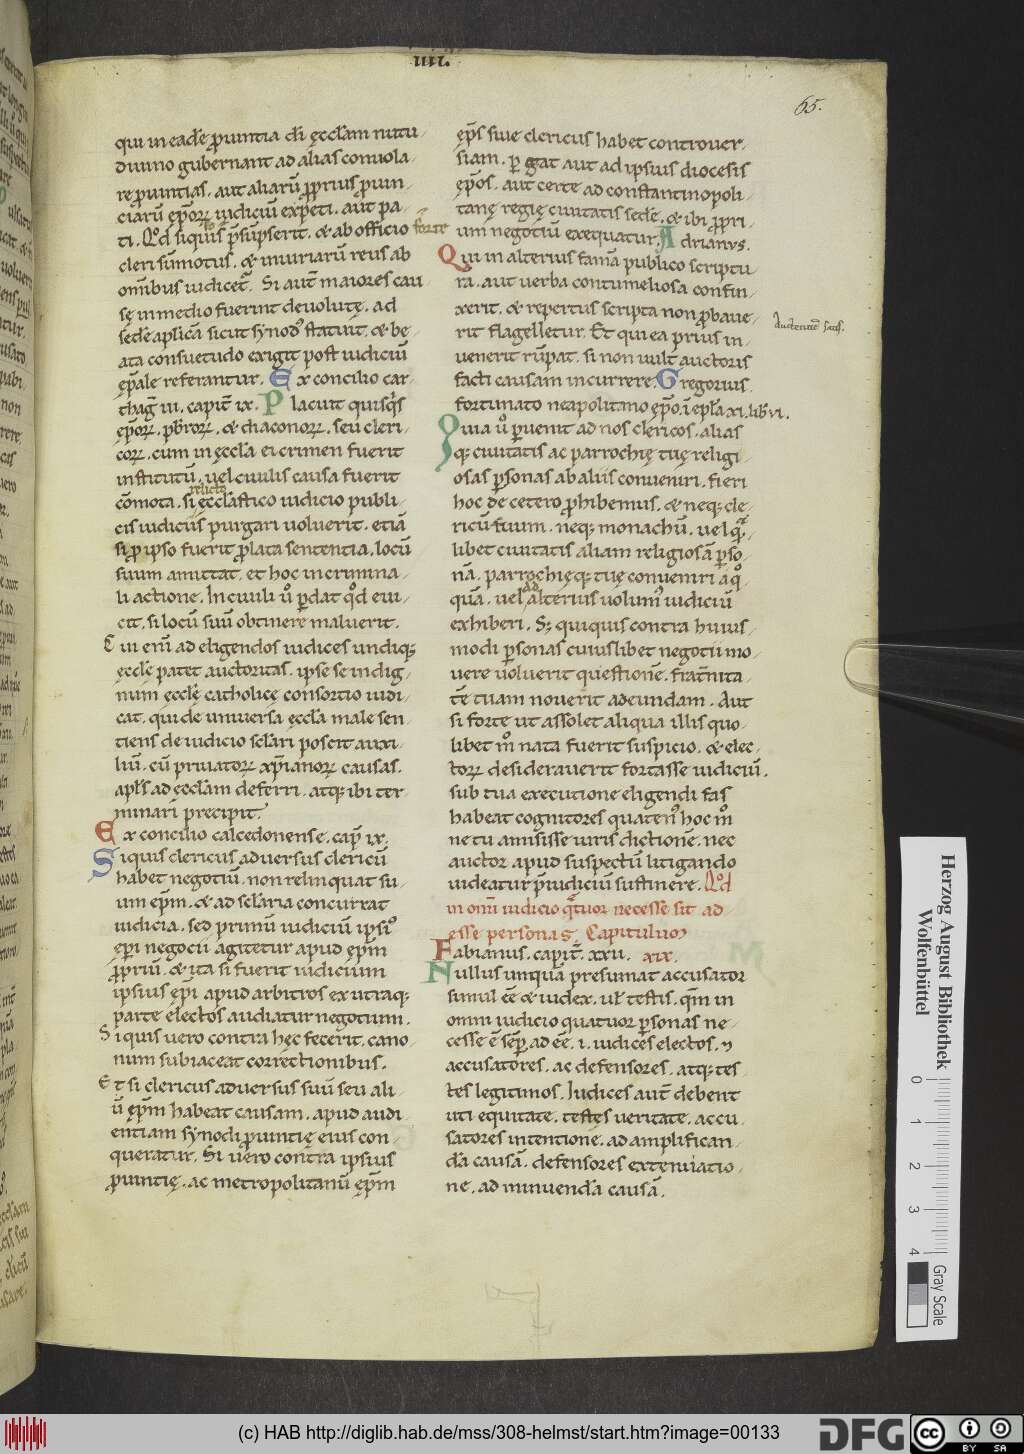 IIII.
65.
qui in eadē ꝓuintia dī ęcctam nutu
diuino gubernant ad alias conuola
re ꝓuintias. aut aliarū ꝓprius ꝓuin
ciarū ep̄orꝝ iudiciū expeti. aut pa
ti. Qd̄ siquis p̄sūpserit. & ab officio forte
cleri sūmotus. & iniuriarū reus ab
omībus iudicet̄. Si aut̄ maiores cau
sę in medio fuerint deuolutę. ad
sedē aplicā sicut synod᷒ statuit. & be
ata consuetudo exigit post iudiciū
ep̄ale referantur. Ex concilio car
thag̃ iii. capit̄ ix. Placuit quisq̇s
ep̄orꝝ. p̄brorꝝ. & diaconorꝝ. seu cleri
corꝝ. cum in ęcclā ei crimen fuerit
institutū. uel ciuilis causa fuerit
relicto
cōmota. si ęcclāstico iudicio publi
cis iudiciis purgari uoluerit. etiā
si ꝓ ipso fuerit ꝓlata sententia. locū
suum amittat. et hoc in crimina
li actione. In ciuili u̇ ꝑdat qd̄ eui
cit. si locū suū obtinere maluerit.
Cui enī ad eligendos iudices undiqꝫ
ęcclę patet auctoritas. ipse se indig
num ęcclę catholicę consortio iudi
cat. qui de uniuersa ęcclā male sen
tiens de iudicio sclari poscit auxi
liū. cū priuatorꝝ xp̄ianorꝝ causas.
apls ad ęcclam deferri. atqꝫ ibi ter
minari precipit.
Ex concilio calcedonense. cap̄ ix.
Siquis clericus aduersus clericū
habet negotiū. non relinquat su
um ep̄m. & ad sclaria concurrat
iudicia. sed primū iudiciū ipsi᷒
ep̄i negocii agitetur apud ep̄m
ꝓpriū. & ita si fuerit iudicium
ipsius ep̄i apud arbitros ex utraqꝫ
parte electos audiatur negotium.
Siquis uero contra hęc fecerit. cano
num subiaceat correctionibus.
Et si clericus aduersus suū seu ali
ū ep̄m habeat causam. apud audi
entiam synodi ꝓuintię eius con
queratur. Si uero contra ipsius
ꝓuintię. ac metropolitanū ep̄m
ep̄s siue clericus habet controuer
siam. ꝑgat aut ad ipsius diocesis
ep̄os. aut certe ad constantinopoli
tanę regię ciuitatis sedē. & ibi ꝓpri
um negotiū exequatur. Adrianus.
Qui in alterius famā publico scriptu
ra. aut uerba contumeliosa confin
xerit. & repertus scripta non ꝓbaue
rit flagelletur. Et qui ea prius in
uenerit rūpat. si non uult auctoris
facti causam incurrere. Gregorius
fortunato neapolitano ep̄o. ī epl̄a xi. libri vi.
Quia u̇ ꝑuenit ad nos clericos. alias
qꝫ ciuitatis ac parrochię tuę religi
osas ꝑsonas ab aliis conueniri. fieri
hoc de cetero ꝓhibemus. & neqꝫ cle
ricū tuum. neqꝫ monachū. uel qᵃ
libet ciuitatis aliam religiosā ꝑso
nā. parrochięqꝫ tuę conueniri a q̊
quā. uel ad alterius uolum᷒ iudiciū
exhiberi. Sꝫ quiquis contra huius
modi ꝑsonas cuiuslibet negotii mo
uere uoluerit questionē. frat̄nita
tē tuam nouerit adeundam. Aut
si forte ut assolet aliqua illis quo
libet m̊ nata fuerit suspicio. & elec
torꝝ desiderauerit fortasse iudiciū.
sub tua executione eligendi fas
habeat cognitores quaten᷒ hoc m̊
ne tu amisisse iuris dictionē. nec
auctor apud suspectū litigando
uideatur p̄iudiciū sustinere. Qd̄
in omī iudicio qᵃtuor necesse sit ad
esse personas. Capitulum
Fabianus. capit̄. xxii. xix.
Nullus unquā presumat accusator
simul eē & iudex. ul̄ testis. qm̄ in
omni iudicio quatuor ꝑsonas ne
cesse ē sēꝑ adeē. i. iudices electos. ⁊
accusatores. ac defensores. atqꝫ tes
tes legitimos. Iudices aut̄ debent
uti equitate. testes ueritate. accu
satores intentione. ad amplifican
dā causā. defensores extenuatio
ne. ad minuendā causā.
Herzog August Bibliothek
Wolfenbüttel
0 1 2 3 4
Gray Scale
(c) HAB http://diglib.hab.de/mss/308-helmst/start.htm?image=00133
DFG
cc BY SA